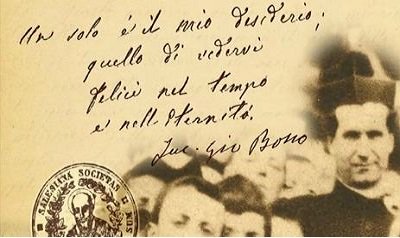 Un solo è il mio desiderio;
quello di vedervi
felici nel tempo
e nell'eternità.
Sac. Gio Bosco
SALESIANA SOCIETAS